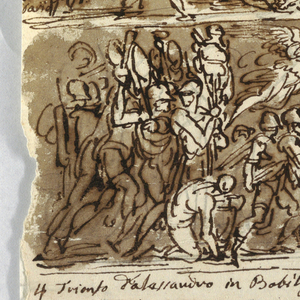 4 Trionfo d'alessandro in Babil